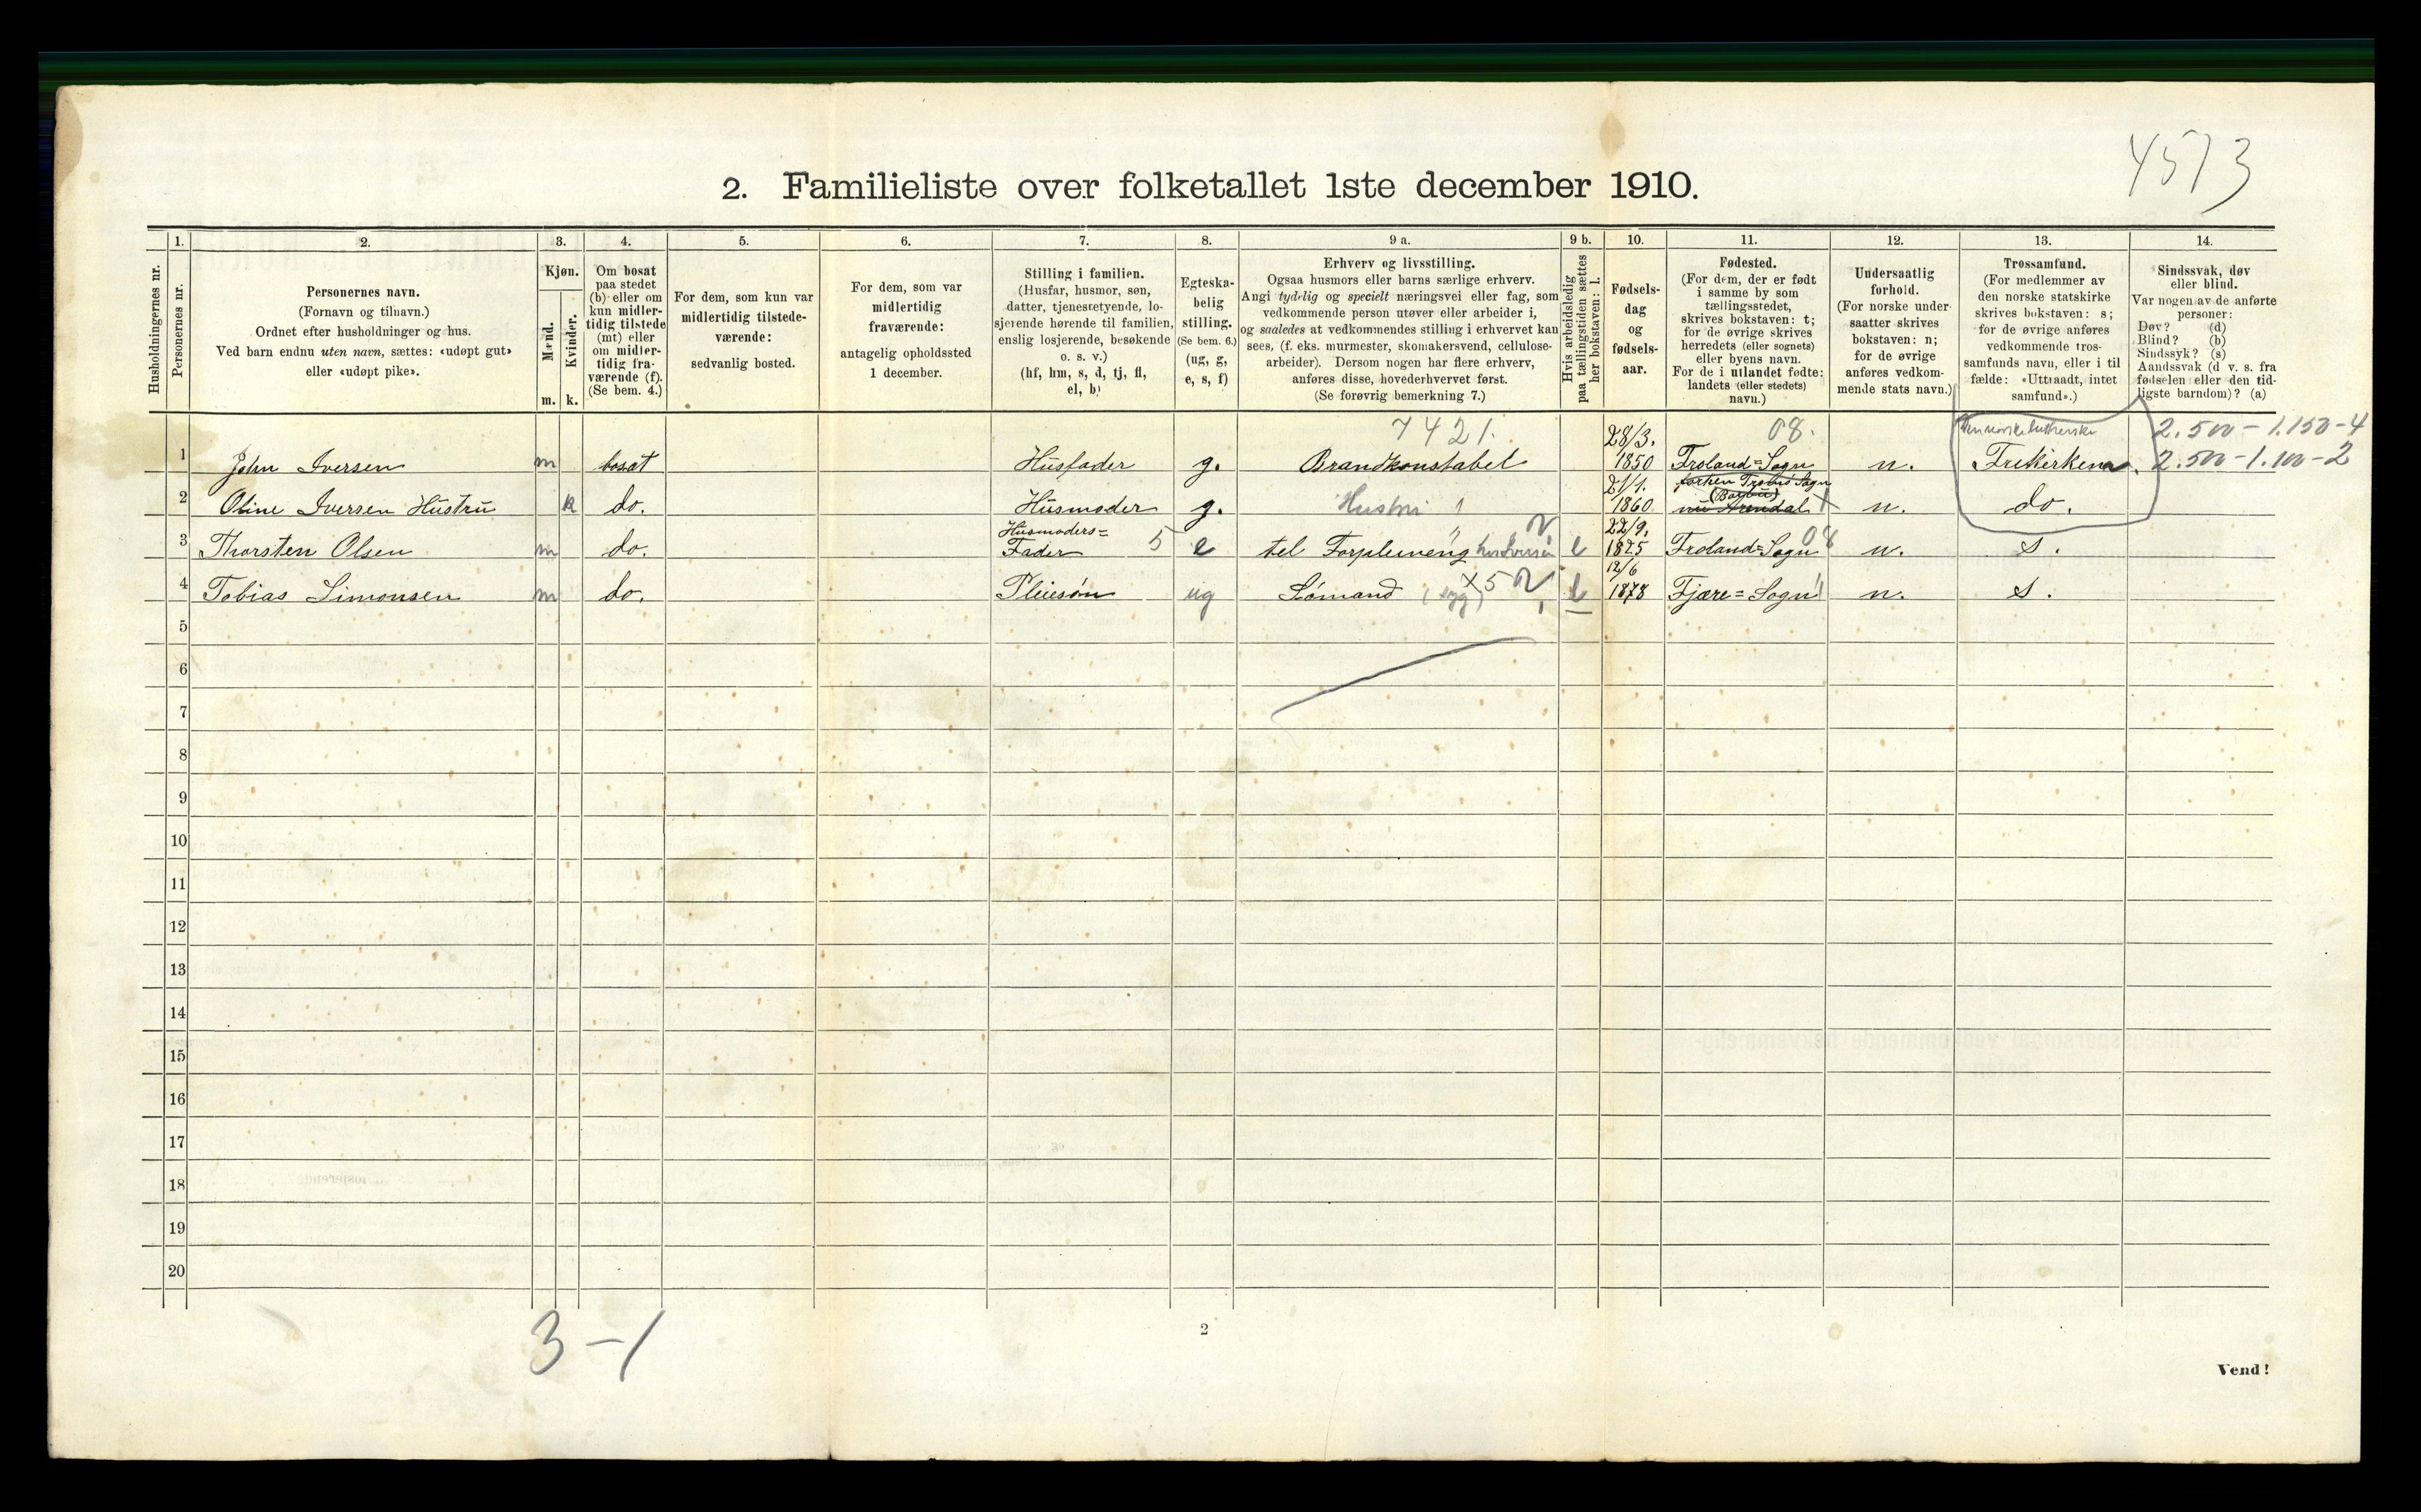 4573
2. Familieliste over folketallet 1ste december 1910.
Husholdningernes nr.
1. 2. 3. 4. 5. 6. 7. 8. 9 a. 9 b. 10. 11. 12. 13. 14.
Personernes nr.
Personernes navn.
(Fornavn og tilnavn.)
Ordnet efter husholdninger og hus.
Ved barn endnu uten navn, sættes: «udøpt gut»
eller «udøpt pike».
Kjøn.
Mænd.
Kvinder.
m. k.
Om bosat
paa stedet
(b) eller om
kun midler-
tidig tilstede
(mt) eller
om midler-
tidig fra-
værende (f).
(Se bem. 4.)
For dem, som kun var
midlertidig tilstede-
værende:
sedvanlig bosted.
For dem, som var
midlertidig
fraværende:
antagelig opholdssted
1 december.
Stilling i familien.
(Husfar, husmor, søn,
datter, tjenestetyende, lo-
sjerende hørende til familien,
enslig losjerende, besøkende
o. s. v.)
(hf, hm, s, d, tj, fl,
el, b)
Egteska-
belig
stilling.
(Se bem. 6.)
(ug, g,
e, s, f)
Erhverv og livsstilling.
Ogsaa husmors eller barns særlige erhverv.
Angi tydelig og specielt næringsvei eller fag, som
vedkommende person utøver eller arbeider i,
og saaledes at vedkommendes stilling i erhvervet kan
sees, (f. eks. murmester, skomakersvend, cellulose-
arbeider). Dersom nogen har flere erhverv,
anføres disse, hovederhvervet først.
(Se forøvrig bemerkning 7.)
Hvis arbeidsledig
paa tællingstiden sættes
her bokstaven: l.
Fødsels-
dag
og
fødsels-
aar.
Fødested.
(For dem, der er født
i samme by som
tællingsstedet,
skrives bokstaven: t;
for de øvrige skrives
herredets (eller sognets)
eller byens navn.
For de i utlandet fødte:
landets (eller stedets)
navn.)
Undersaatlig
forhold.
(For norske under-
saatter skrives
bokstaven: n;
for de øvrige
anføres vedkom-
mende stats navn.)
Trossamfund.
(For medlemmer av
den norske statskirke
skrives bokstaven: s;
for de øvrige anføres
vedkommende tros-
samfunds navn, eller i til
fælde: «Uttraadt, intet
samfund».)
Sindssvak, døv
eller blind.
Var nogen av de anførte
personer:
Døv? (d)
Blind? (b)
Sindssyk? (s)
Aandssvak (d v. s. fra
fødselen eller den tid-
ligste barndom)? (a)
7421. 28/3. 08. 2.500 - 1.150 - 4
1 John Iversen m bosat Husfader g. Brandkonstabel 1850 Froland=Sogn n. Frikirken. 2.500 - 1.100 - 2
21/1.
(Barbu)
2 Oline Iversen Hustru k do. Husmoder g. Hustru 1 1860 nu Arendal n. do.
Husmoders= 22/9.
3 Thorsten Olsen m do. Fader 5 e tel Forpleining l 1825 Froland=Sogn 08 n. s.
12/6
4 Tobias Simonsen m do. Pleiesøn ug Sømand (syg) x5 l 1878 Fjære=Sogn n. s.
5
6
7
8
9
10
11
12
13
14
15
16
17
18
19
20
3-1
2
Vend!